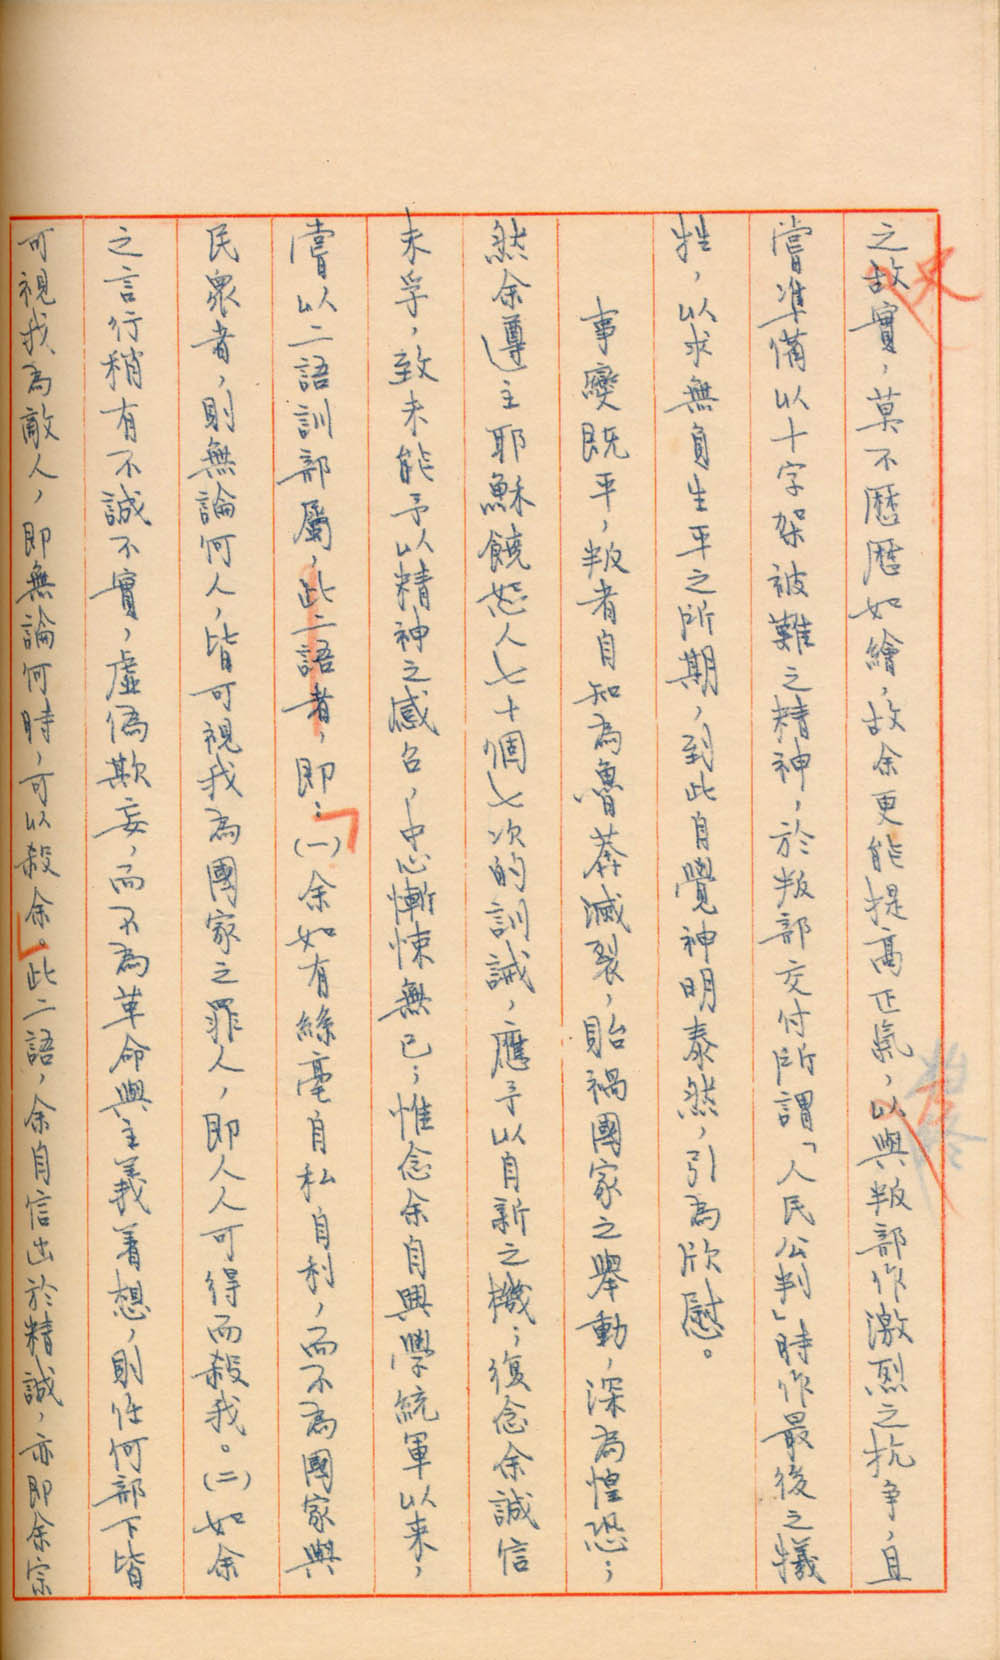 之故實，莫不歷歷如繪，故余更能提高正氣，以與叛部作激烈之抗爭，且
史
嘗準備以十字架被難之精神，於叛部交付所謂「人民公判」時作最後之犧
牲，以求無負生平之所期，到此自覺神明泰然，引為欣慰。
事變既平，叛者自知為魯莽滅裂，貽禍國家之舉動，深為惶恐；
然余遵主耶穌饒恕人七十個七次的訓誡，應予以自新之機；復念余誠信
未孚，致未能予以精神之感召，中心慚悚無已；惟念余自興學統軍以來，
嘗以二語訓部屬，此二語者，即：「(一)余如有絲毫自私自利，而不為國家與
民衆者，則無論何人，皆可視我為國家之罪人，即人人可得而殺我。(二)如余
之言行稍有不誠不實，虛偽欺妄，而不為革命與主義著想，則任何部下皆
可視我為敵人，即無論何時，可以殺余。」此二語，余自信出於精誠，亦即余宗